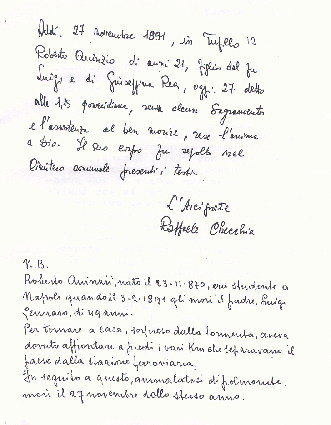 Addì 27 novembre 1891, in Tufillo
Roberto Quinzii di anni 21, figlio del fu
Luigi e di Giuseppina Rea, oggi 27 detto
alle 1,½ pomeridiane, senza alcun Sagramento
e l'assistenza al ben morire, rese l'anima
a Dio. Il suo corpo fu sepolto nel
Cimitero comunale presenti i testi.
L'Arciprete
Raffaele Checchia
N. B.
Roberto Quinzii, nato il 23-11-870, era studente a
Napoli quando il 3-2-1891 gli morì il padre, Luigi
Gennaro, di 49 anni.
Per tornare a casa, sorpreso dalla tormenta, aveva
dovuto affrontare a piedi i vari Km che separavano il
paese dalla stazione ferroviaria.
In seguito a questo, ammalatosi di polmonite,
morì il 27 novembre dello stesso anno.